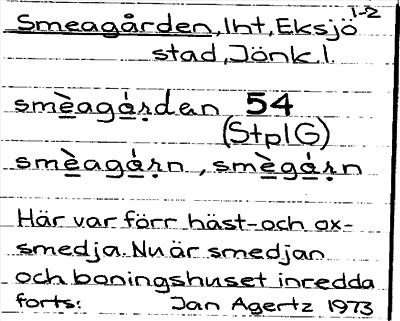 1-2
Smeagården, lht, Eksjö
stad, Jönk. l.
smè̱agá̱ṛdan 54
(StplG)
smè̱agá̱ṛn, smè̱gá̱ṛn
Här var förr häst- och ox-
smedja. Nu är smedjan
och boningshuset inredda
forts: Jan Agertz 1973